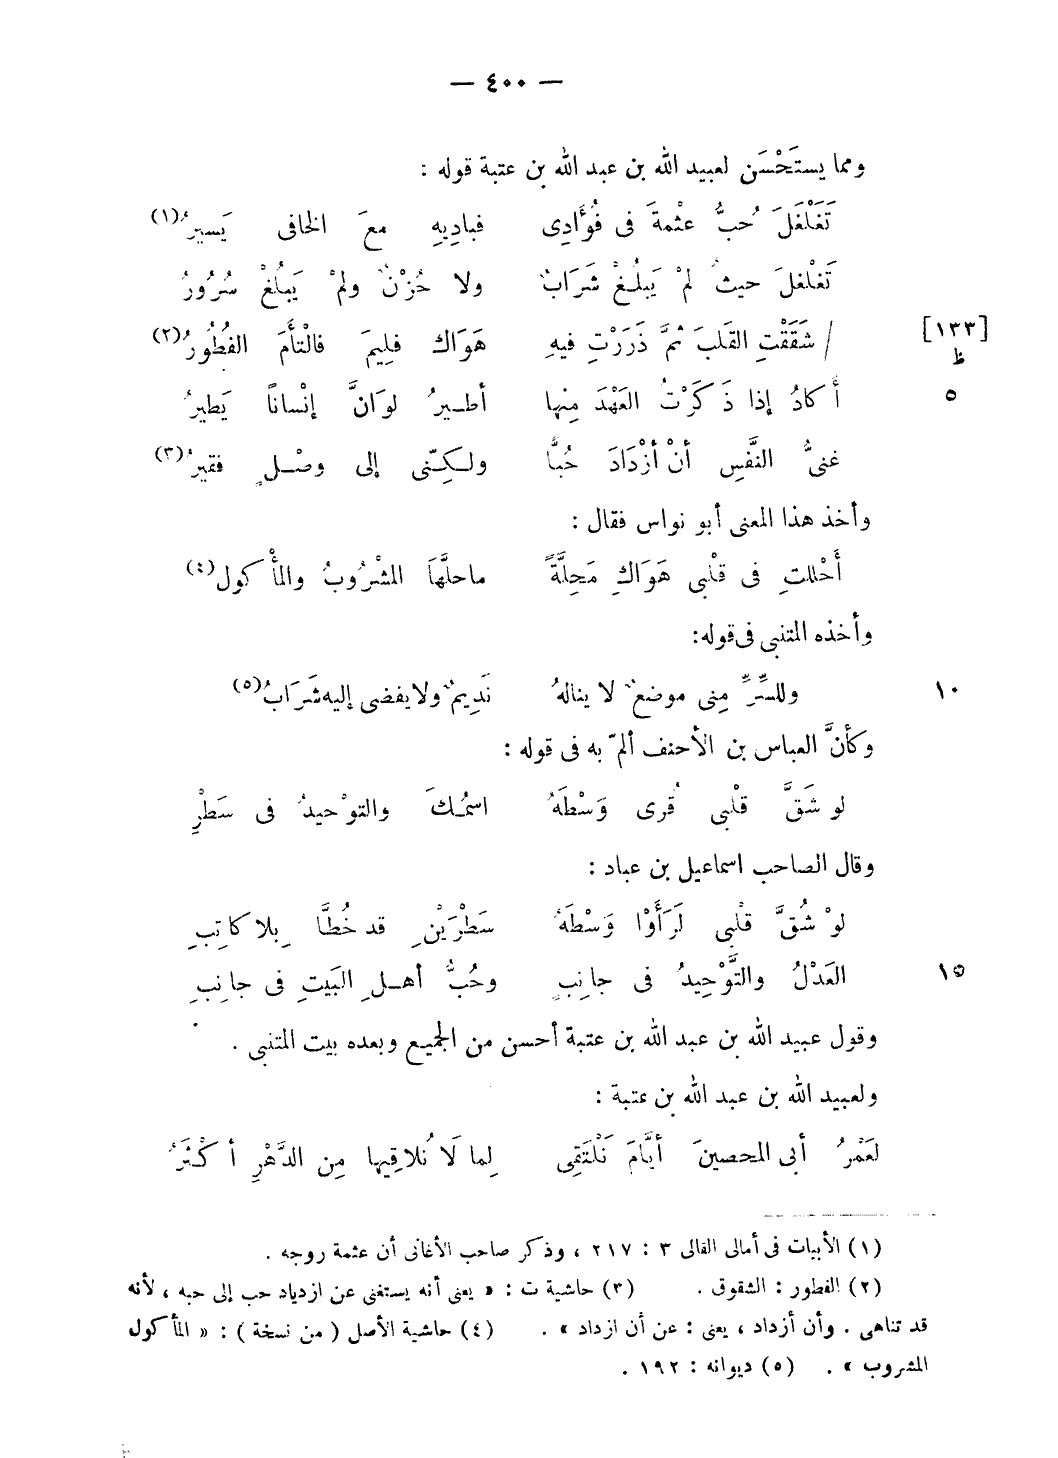 — ٤٠٠ —
ومما يستَحْسَن لعبيد الله بن عبد الله بن عتبة قوله :
تَغَلْغَلَ حُبُّ عثْمةَ فى فُؤَادِى فبادِيهِ معَ الخافى يَسيرُ(١)
تَغلْغلَ حيثُ لمْ يَبلُغْ شَرَابٌ ولا حُزْنٌ ولمْ يَبلُغْ سُرُورُ
[١٣٣ ظ] / شَقَقْتِ القلبَ ثمَّ ذَرَرْتِ فيهِ هَوَاك فلِيمَ فالْتأَمَ الفُطُورُ(٢)
٥ أكادُ إذا ذَكَرْتُ العَهْدَ مِنها أطيرُ لو انَّ إنْساناً يَطيرُ
غنىُّ النَّفْسِ أنْ أزْدَادَ حُبًّا ولكِنّى إلى وصْلٍ فقيرُ(٣)
وأخذ هذا المعنى أبو نواس فقال :
أَحْللتِ فى قلْبى هَوَاكِ مَحِلَّةً ماحلَّهَا المشْرُوبُ والمأْكول(٤)
وأخذه المتنبى فى قوله:
١٠ وللسِّرِّ مِنى موضعٌ لا ينالهُ نَدِيمٌ ولا يفضى إليه شَرَابُ(٥)
وكأنَّ العباس بن الأحنف ألمّ به فى قوله :
لو شَقَّ قلْبى قُرى وَسْطَهُ اسمُكَ والتوْحيدُ فى سَطْرِ
وقال الصاحب اسماعيل بن عباد :
لوْ شُقَّ قلْبى لَرَأَوْا وَسْطَهُ سَطْرَيْنِ قد خُطَّا بِلا كاتِبِ
١٥ العَدْلُ والتَّوْحِيدُ فى جانِبٍ وحُبُّ أهلِ البَيتِ فى جانِبِ
وقول عبيد الله بن عبد الله بن عتبة أحسن من الجميع وبعده بيت المتنبى .
ولعبيد الله بن عبد الله بن عتبة :
لَعَمْرُ أبى المحصينَ أيَّامَ نَلْتَقِى لِما لَا نُلاقِيها مِن الدَّهْرِ أكْثَرُ
(١) الأبيات فى أمالى القالى ٣ : ٢١٧ ، وذكر صاحب الأغانى أن عثمة زوجه .
(٢) الفطور : الشقوق . (٣) حاشية ت : « يعنى أنه يستغنى عن ازدياد حب إلى حبه ، لأنه
قد تناهى . وأن أزداد ، يعنى : عن أن ازداد » . (٤) حاشية الأصل ( من نسخة ) : « المأكول
المشروب » . (٥) ديوانه : ١٩٢ .